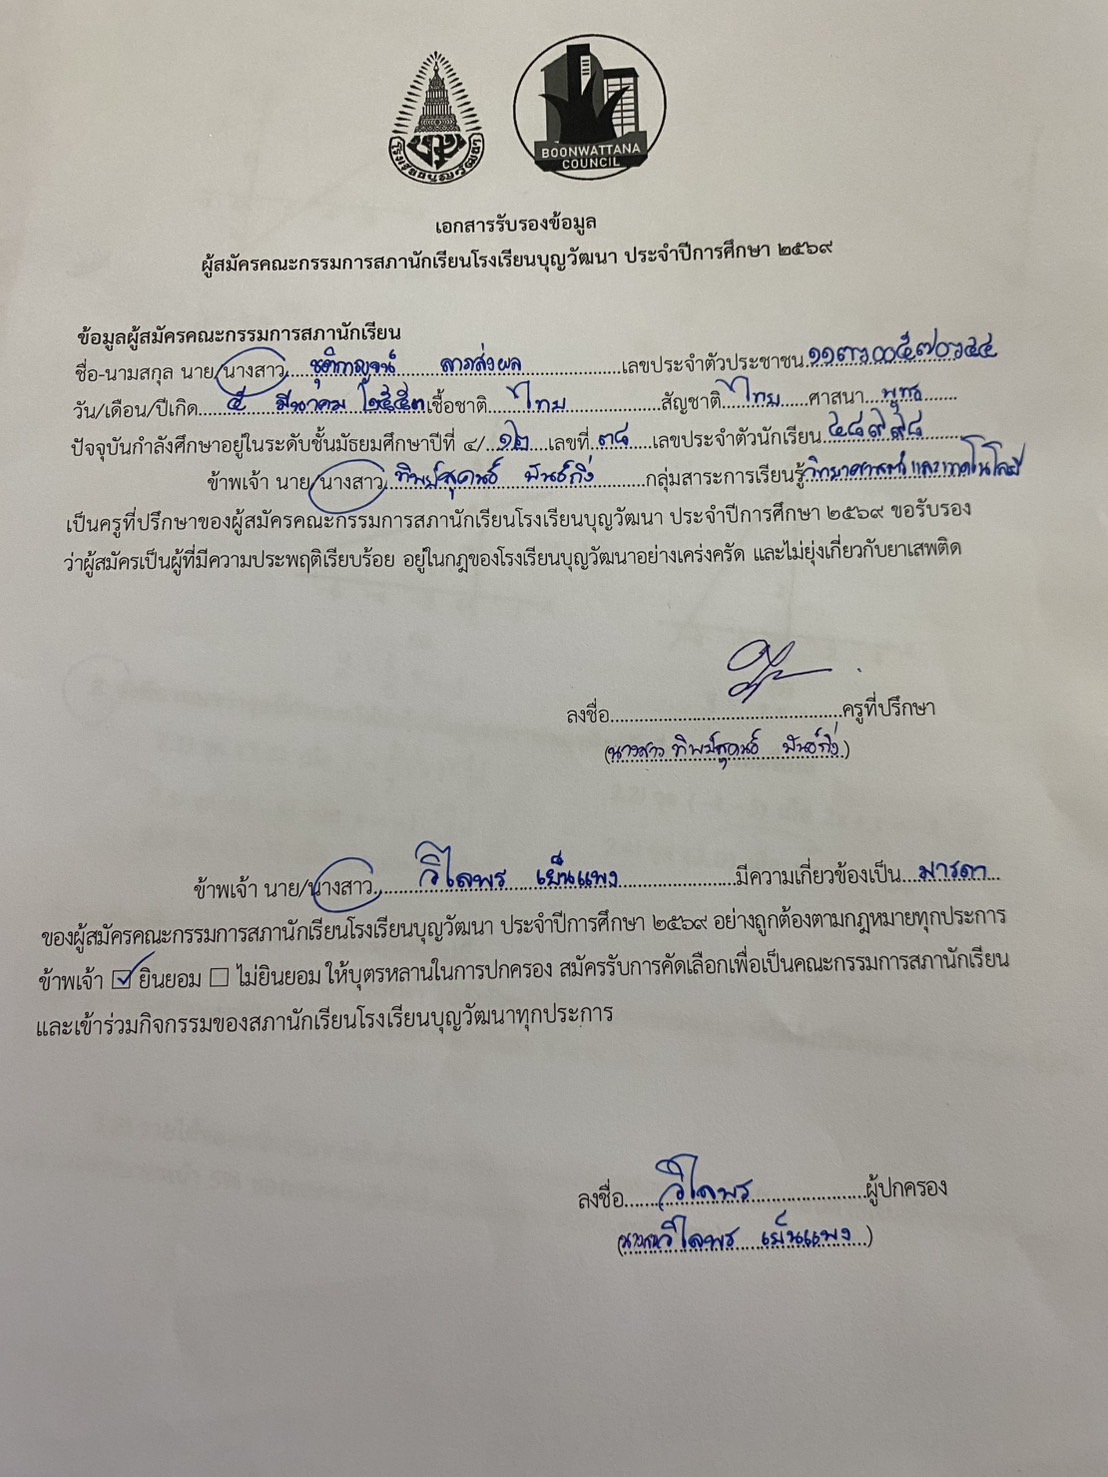 โรงเรียนบุญวัฒนา
BOONWATTANA
COUNCIL
เอกสารรับรองข้อมูล
ผู้สมัครคณะกรรมการสภานักเรียนโรงเรียนบุญวัฒนา ประจำปีการศึกษา ๒๕๖๙
ข้อมูลผู้สมัครคณะกรรมการสภานักเรียน
ชื่อ-นามสกุล นาย/นางสาว ชุติกาญจน์ ลาภส่งผล เลขประจำตัวประชาชน
วัน/เดือน/ปีเกิด ๕ มีนาคม ๒๕๕๓ เชื้อชาติ ไทย สัญชาติ ไทย ศาสนา พุทธ
ปัจจุบันกำลังศึกษาอยู่ในระดับชั้นมัธยมศึกษาปีที่ ๔/ ๑๒ เลขที่ ๓๘ เลขประจำตัวนักเรียน ๔๘๙๙๘
ข้าพเจ้า นาย/นางสาว ทิพย์สุคนธ์ พันธ์กิ่ง กลุ่มสาระการเรียนรู้ วิทยาศาสตร์และเทคโนโลยี
เป็นครูที่ปรึกษาของผู้สมัครคณะกรรมการสภานักเรียนโรงเรียนบุญวัฒนา ประจำปีการศึกษา ๒๕๖๙ ขอรับรอง
ว่าผู้สมัครเป็นผู้ที่มีความประพฤติเรียบร้อย อยู่ในกฎของโรงเรียนบุญวัฒนาอย่างเคร่งครัด และไม่ยุ่งเกี่ยวกับยาเสพติด
ลงชื่อ ครูที่ปรึกษา
(นางสาว ทิพย์สุคนธ์ พันธ์กิ่ง)
ข้าพเจ้า นาย/นางสาว วิไลพร เย็นแพง มีความเกี่ยวข้องเป็น มารดา
ของผู้สมัครคณะกรรมการสภานักเรียนโรงเรียนบุญวัฒนา ประจำปีการศึกษา ๒๕๖๙ อย่างถูกต้องตามกฎหมายทุกประการ
ข้าพเจ้า ☑ ยินยอม ☐ ไม่ยินยอม ให้บุตรหลานในการปกครอง สมัครรับการคัดเลือกเพื่อเป็นคณะกรรมการสภานักเรียน
และเข้าร่วมกิจกรรมของสภานักเรียนโรงเรียนบุญวัฒนาทุกประการ
ลงชื่อ วิไลพร ผู้ปกครอง
(นางสาววิไลพร เย็นแพง)